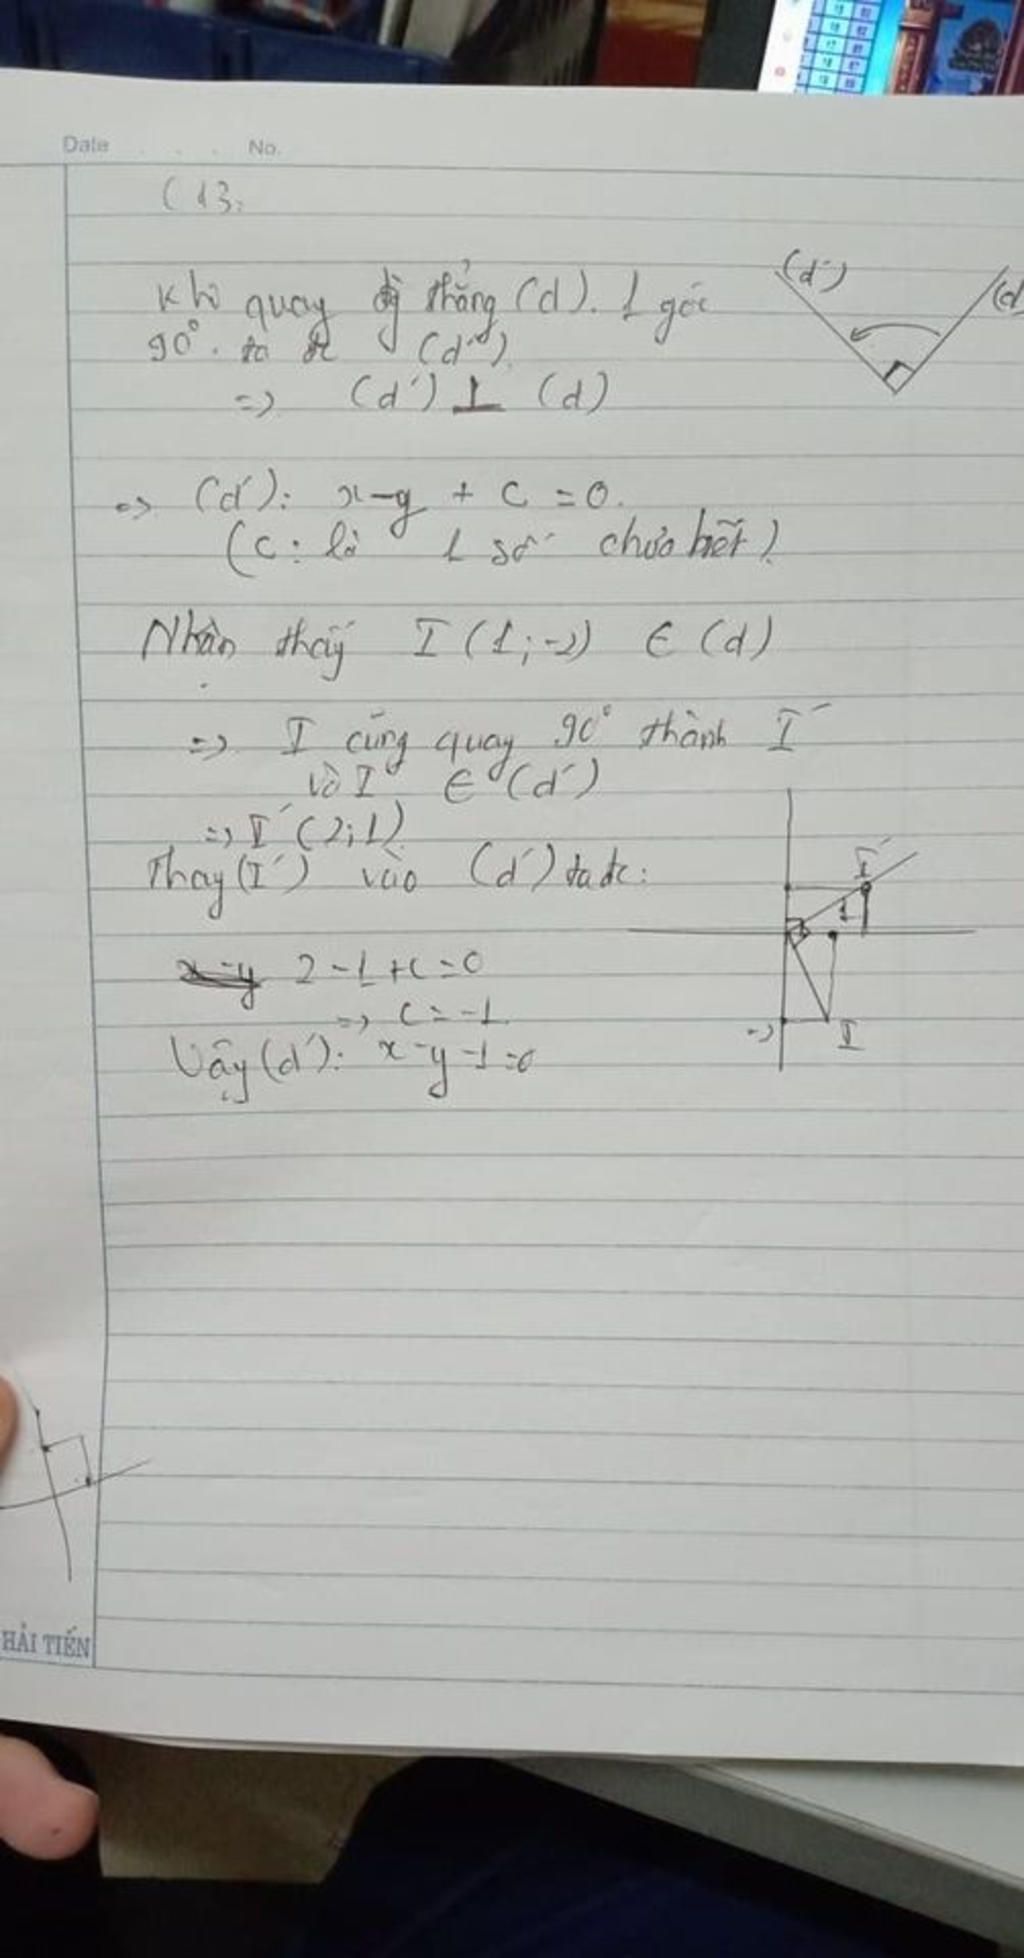 Date No.
C13:
Khi quay đg thẳng (d). 1 góc
90°. ta đc (d').
=> (d') ⊥ (d)
(d') (d
=> (d'): x-y + C = 0.
(C: là 1 số chưa biết)
Nhận thấy I (1;-2) ∈ (d)
=> I cũng quay 90° thành I'
và I' ∈ (d')
=> I' (2;1)
Thay (I') vào (d') ta đc:
x-y 2-1+C=0
=> C=-1
Vậy (d'): x-y-1=0
I'
1
I
HẢI TIẾN